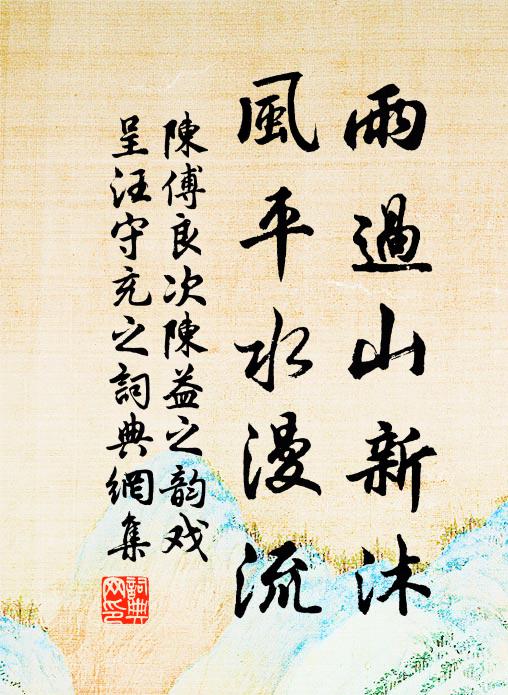 雨過山新沐
風平水漫流
陳傅良次陳益之韵戏
呈汪守充之詞典網集
詞典網印